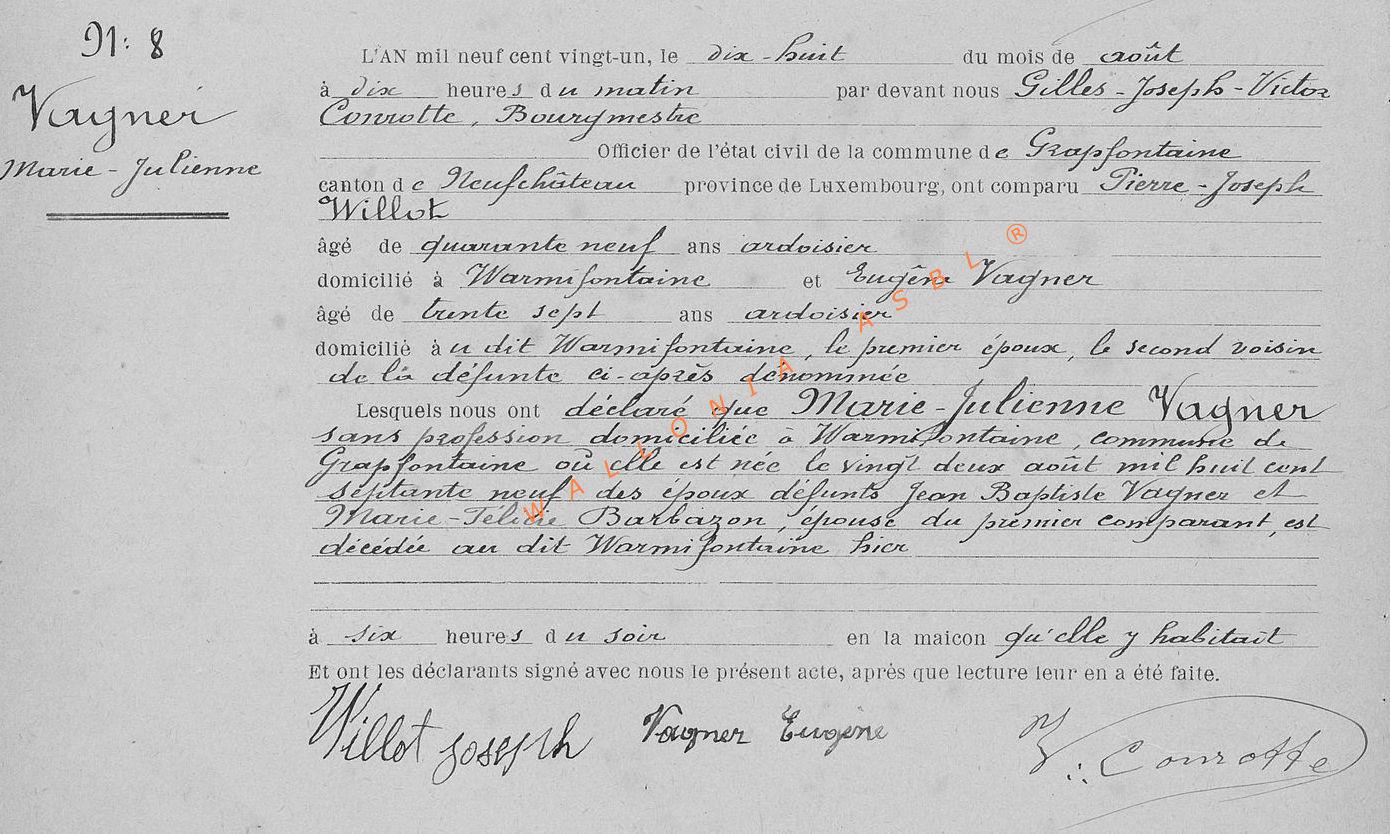 N: 8
Vagner
Marie-Julienne
L'AN mil neuf cent vingt-un, le dix-huit du mois de août
à dix heures du matin par devant nous Gilles-Joseph-Victor
Conrotte, Bourgmestre
Officier de l'état civil de la commune de Grapfontaine
canton de Neufchâteau province de Luxembourg, ont comparu Pierre-Joseph
Willot
âgé de quarante neuf ans ardoisier
domicilié à Warmifontaine et Eugène Vagner
âgé de trente sept ans ardoisier
domicilié au dit Warmifontaine, le premier époux, le second voisin
de la défunte ci-après dénommée
Lesquels nous ont déclaré que Marie-Julienne Vagner
sans profession domiciliée à Warmifontaine, commune de
Grapfontaine où elle est née le vingt deux août mil huit cent
septante neuf des époux défunts Jean Baptiste Vagner et
Marie-Félicie Barbazon, épouse du premier comparant, est
décédée au dit Warmifontaine hier
à six heures du soir en la maicon qu'elle y habitait
Et ont les déclarants signé avec nous le présent acte, après que lecture leur en a été faite.
Willot Joseph Vagner Eugène V. Conrotte
WALLONIA ASBL ®